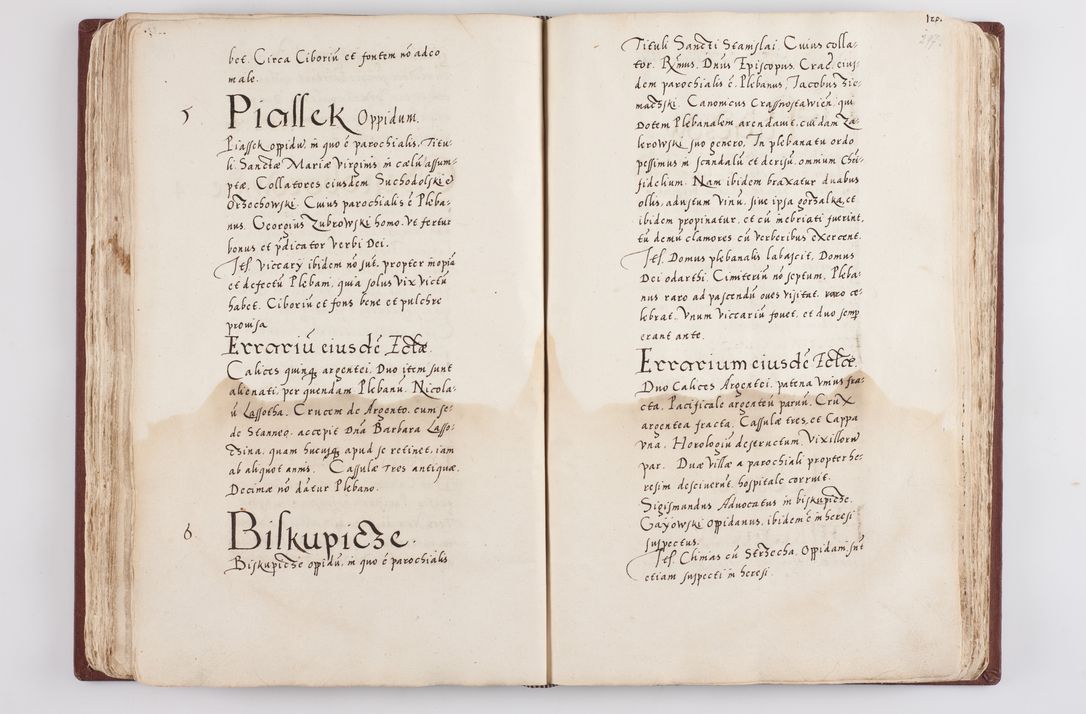 bet. Circa Ciboriũ et fontem nõ adeo
male.
5 Piassek Oppidum.
Piassek oppidũ, in quo ẽ parochialis, Titu-
li. Sanctæ Mariæ Virginis in cælũ assum-
ptæ. Collatores eiusdem Suchodolski et
Orzechowski. Cuius parochialis ẽ Pleba-
nus. Georgius Zubrowski homo. Vt fertur
bonus et p̃dicator Verbi Dei.
Itẽ. Viccarÿ ibidem nõ sũt. propter inopiã
et defectũ Plebani, quia solus Vix Victũ
habet. Ciboriũ et fons bene et pulchre
prouisa
Errariũ eiusdẽ Ecl̃æ.
Calices quinq; argentei. Duo item sunt
alienati, per quendam Plebanũ. Nicola-
ũ Lassotha. Crucem de Argento. cum se-
de Stanneo. accepit Dña Barbara Lasso-
czina, quam hucusq; apud se retinet, iam
ab aliquot annis. Cassulæ tres antiquæ.
Decimæ nõ dãtur Plebano.
6. Biskupicze.
Biskupicze oppidũ, in quo ẽ parochialis
120.
297.
Tituli Sancti Stanislai. Cuius colla-
tor. Rm̃us. Dñus Episcopus. Crac̃. eius-
dem parochialis ẽ. Plebanus, Jacobus Sie-
maczski. Canonicus Crassnostawieñ. qui
Dotem Plebanalem arendauit, cuidam Za-
lerowski suo genero. In plebanatu ordo
pessimus in scandalũ et derisũ, omnium Chri-
fidelium. Nam ibidem braxatur duabus
ollis, adustum Vinũ, siue ipsa gorzalka, et
ibidem propinatur, et cũ inebriati fuerint,
tũ demũ clamores cũ verberibus exercent.
Itẽ. Domus plebanalis labascit. Domus
Dei odarthi. Cimiteriũ nõ septum. Pleba-
nus raro ad pascendũ oues visitat. raro ce-
lebrat. Vnum Viccariũ fouet, et duo semp
erant ante.
Errarium eiusdẽ Ecl̃æ.
Duo Calices Argentei, patena Vnius fra-
cta. Pacificale argenteũ paruũ. Crux
argentea fracta. Cassulæ tres, et Cappa
vna. Horologiũ destructum. Vixillorũ
par. Duæ Villæ a parochiali propter he-
resim desciuerũt. hospitale corruit.
Sigismundus Aduocatus in biskupicze.
Gayowski oppidanus, ibidem ẽ in heresi
suspectus.
Itẽ. Climas cũ Strzecha. Oppidani sũt
etiam suspecti in heresi.